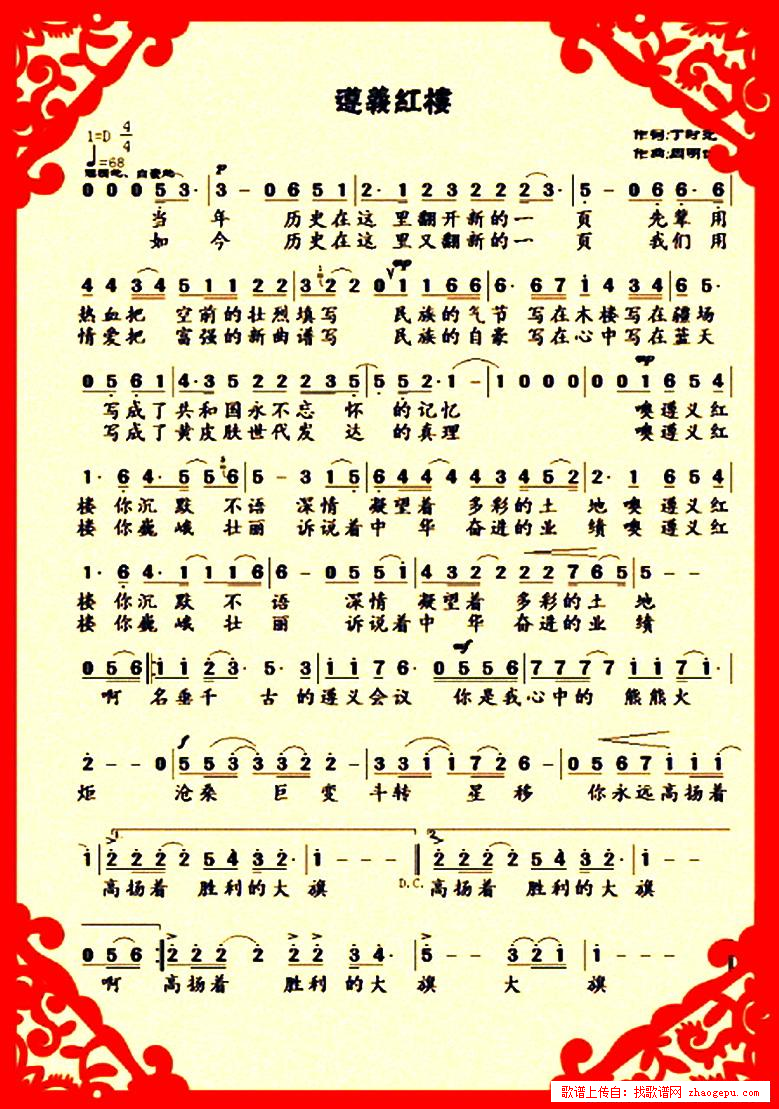 遵義紅樓
1=D 4/4
♩=68
作詞:丁时光
作曲:周明
p
0 0 0 5 3· | 3 - 0 6 5 1 | 2· 1 2 3 2 2 2 3· | 5 - 0 6 6· 6
当 年 历史在这 里翻开新的一 頁 先辈用
如 今 历史在这 里又翻新的一 頁 我们用
mp
4 4 3 4 5 1 1 2 2 | 3 2 2 0 1 1 6 6 | 6· 6 7 1 4 3 4 | 6 5·
热血把 空前的壮烈填写 民族的气节 写在木楼写在疆场
情爱把 富强的新曲谱写 民族的自豪 写在心中写在蓝天
mp
0 5 6 1 | 4· 3 5 2 2 2 3 5 | 5 5 2· 1 - | 1 0 0 0 | 0 0 1 6 5 4
写成了共和国永不忘 怀 的记忆 噢遵义红
写成了黄皮肤世代发 达 的真理 噢遵义红
1· 6 4· 5 5 6 | 5 - 3 1 5 | 6 4 4 4 4 3 4 5 2 | 2· 1 6 5 4
楼 你沉 默 不语 深情 凝望着 多彩的土 地 噢 遵义红
楼 你巍 峨 壮丽 诉说着中 华 奋进的业 绩 噢 遵义红
1· 6 4· 1 1 1 6 | 6 - 0 5 5 1 | 4 3 2 2 2 2 2 7 6 5 | 5 - -
楼 你沉 默 不 语 深情 凝望着 多彩的土 地
楼 你巍 峨 壮 丽 诉说着中 华 奋进的业 绩
mf
0 5 6 ‖: 1 1 2 3· 5· 3 | 1 1 7 6· 0 5 5 6 | 7 7 7 7 1 1 7 1·
啊 名垂千 古 的遵义会议 你是我心中的 熊熊火
f
2 - - 0 | 5 5 3 3 3 2 2 - | 3 3 1 1 7 6 - | 0 5 6 7 1 1 1
炬 沧桑 巨 变 斗转 星 移 你永远高扬着
1. 2.
1 | 2 2 2 2 5 4 3 2· | 1 - - - ‖ 2 2 2 2 5 4 3 2· | 1 - - -
高扬着 胜利的大 旗 D.C. 高扬着 胜利的大 旗
0 5 6 :‖ 2 2 2 2 2 2 3 4· | 5 - - 3 2 1 | 1 - - -
啊 高扬着 胜利 的大 旗 大 旗
歌谱上传自: 找歌谱网 zhaogepu.com